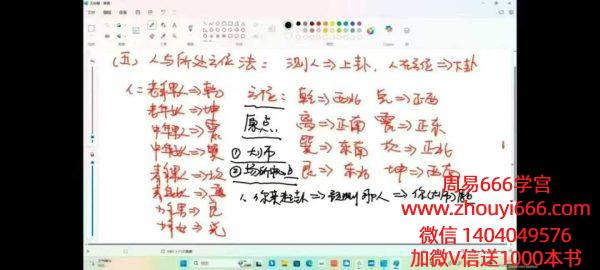 (五) 人与所处方位法: 测人⇒上卦, 人在方位⇒下卦
人: 老年男人⇒乾
老年女人⇒坤
中年男人⇒震
中年女人⇒巽
青年男人⇒坎
⇒离
少年男⇒艮
少女⇒兑
方位: 乾⇒西北 兑⇒正西
原点 离⇒正南 震⇒正东
① 大师 巽⇒东南 坎⇒正北
② 场所中心 艮⇒东北 坤⇒西南
周易666学宫
www.zhouyi666.com
微信 1404049576
加微V信送1000本书